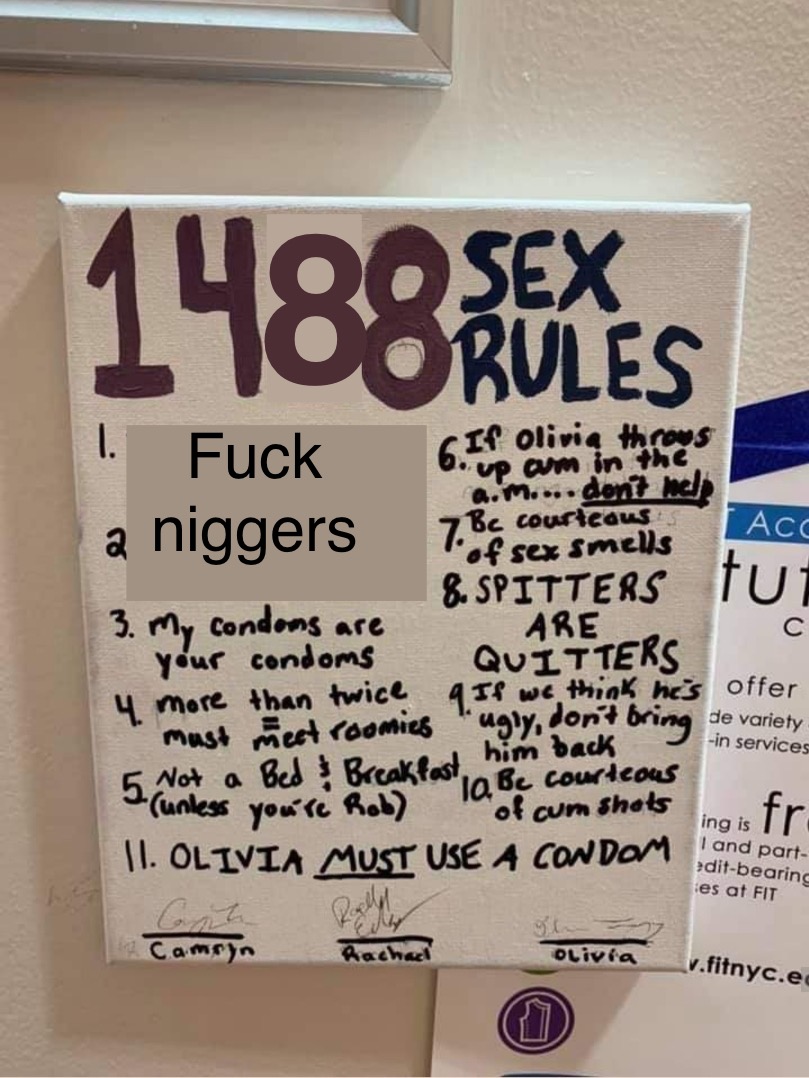 1488 SEX
RULES
1.
Fuck
niggers
2
3. My condoms are
your condoms
4. more than twice
=
must meet roomies
5. Not a Bed & Breakfast
(unless you're Rob)
6. If Olivia throws
up cum in the
a.m.... don't help
7. Be courteous
of sex smells
8. SPITTERS
ARE
QUITTERS
9. If we think he's
ugly, don't bring
him back
10. Be courteous
of cum shots
11. OLIVIA MUST USE A CONDOM
Camryn
Rachael
OLivia
Acc
tut
C
offer
de variety
-in services
ing is fr
l and part-
edit-bearing
es at FIT
v.fitnyc.e